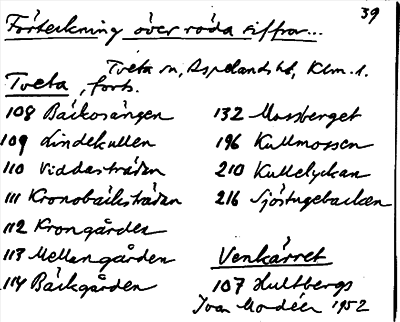 39
Förteckning över röda siffror...
Tveta sn, Aspelands hd, Klm. l.
Tveta, forts.
108 Bäckosängen
109 Lindekullen
110 Viddesträdan
111 Kronobäcksträdan
112 Krongärdet
113 Mellangärden
114 Bäckgärden
132 Mossberget
196 Kullmossen
210 Kullelyckan
216 Sjöstugebacken
Venkärret
107 Hultbergs
Ivar Modéer 1952